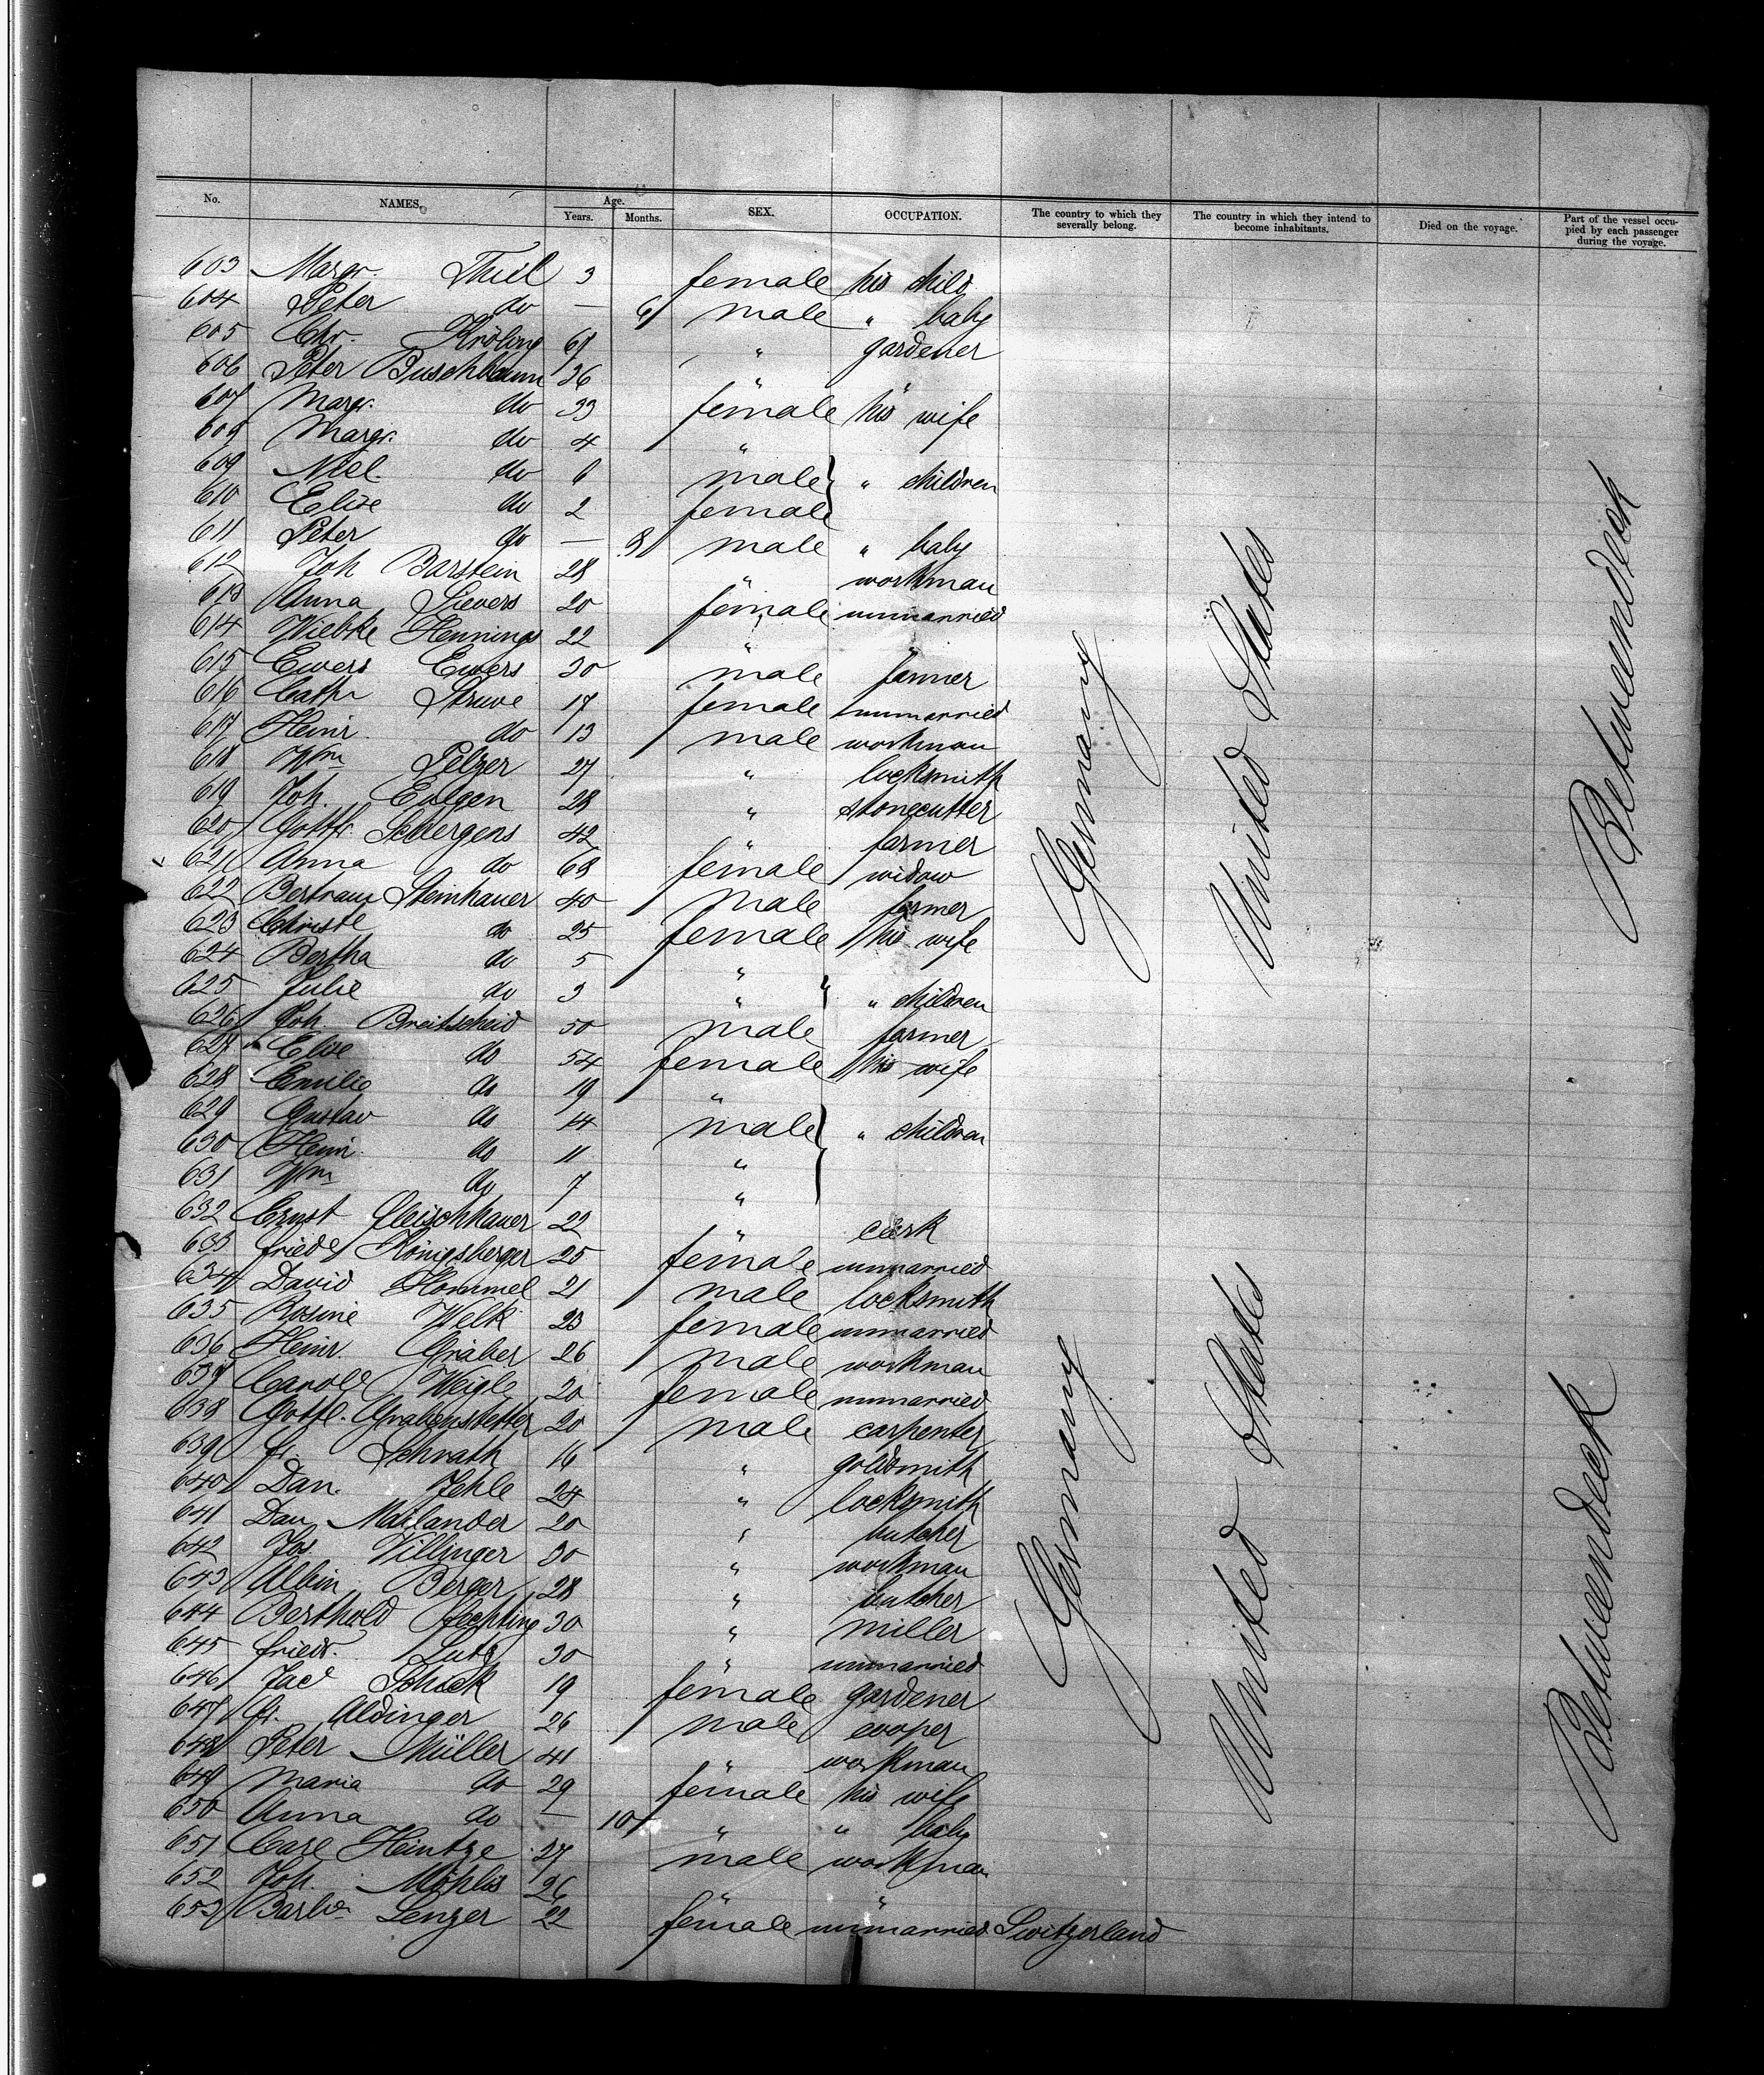 No. NAMES. Age. Years. Months. SEX. OCCUPATION. The country to which they severally belong. The country in which they intend to become inhabitants. Died on the voyage. Part of the vessel occupied by each passenger during the voyage.
603 Margr. Thiel 3 female his child
604 Peter do — 6 male " baby
605 Chr. Kröling 67 " gardener
606 Peter Buschbaum 36 " "
607 Margr. do 33 female his wife
608 Margr. do 4 "
609 do 6 male " children
610 Elise do 2 female
611 Peter do — 9 male " baby
612 Joh Barstein 28 " workman
613 Anna Sievers 20 female unmarried
614 Wiebke Hennings 22 " "
615 Ewers Ewers 30 male farmer
616 Cathr Struve 17 female unmarried
617 Heinr. do 13 male workman
618 Wm Pelzer 27 " locksmith
619 Joh. Eulgen 28 " stonecutter
620 Gottfr. Schergens 42 " farmer
621 Anna do 68 female widow
622 Bertram Steinhauer 40 male farmer
623 Christe do 25 female his wife
624 Bertha do 5 "
625 Julie do 3 " " children
626 Joh. Breitscheid 50 male farmer
627 Elise do 54 female his wife
628 Emilie do 19 "
629 Gustav do 14 male " children
630 Heinr. do 11 "
631 Wm do 7 "
632 Ernst Fleischhauer 22 " clerk
633 Friede Königsberger 25 female unmarried
634 David Hommel 21 male locksmith
635 Rosine Welk 23 female unmarried
636 Heinr. Gräber 26 male workman
637 Carole Weigle 20 female unmarried
638 Gottl. Grabenstetter 20 male carpenter
639 Fr. Schrath 16 " goldsmith
640 Dan. Jehle 24 " locksmith
641 Dan Mailander 20 " butcher
642 Jos. Villinger 30 " workman
643 Albin Berger 28 " butcher
644 Berthold Fechting 30 " miller
645 Friedr. Lutz 30 " unmarried
646 Jac Schick 19 female gardener
647 Fr. Aldinger 26 male cooper
648 Peter Müller 41 " workman
649 Maria do 29 female his wife
650 Anna do — 10 " " baby
651 Carl Heintze 27 male workman
652 Joh. Möhlis 26 " "
653 Barbr. Lenzer 22 female unmarried Switzerland
Germany United States Betweendeck
Germany United States Betweendeck